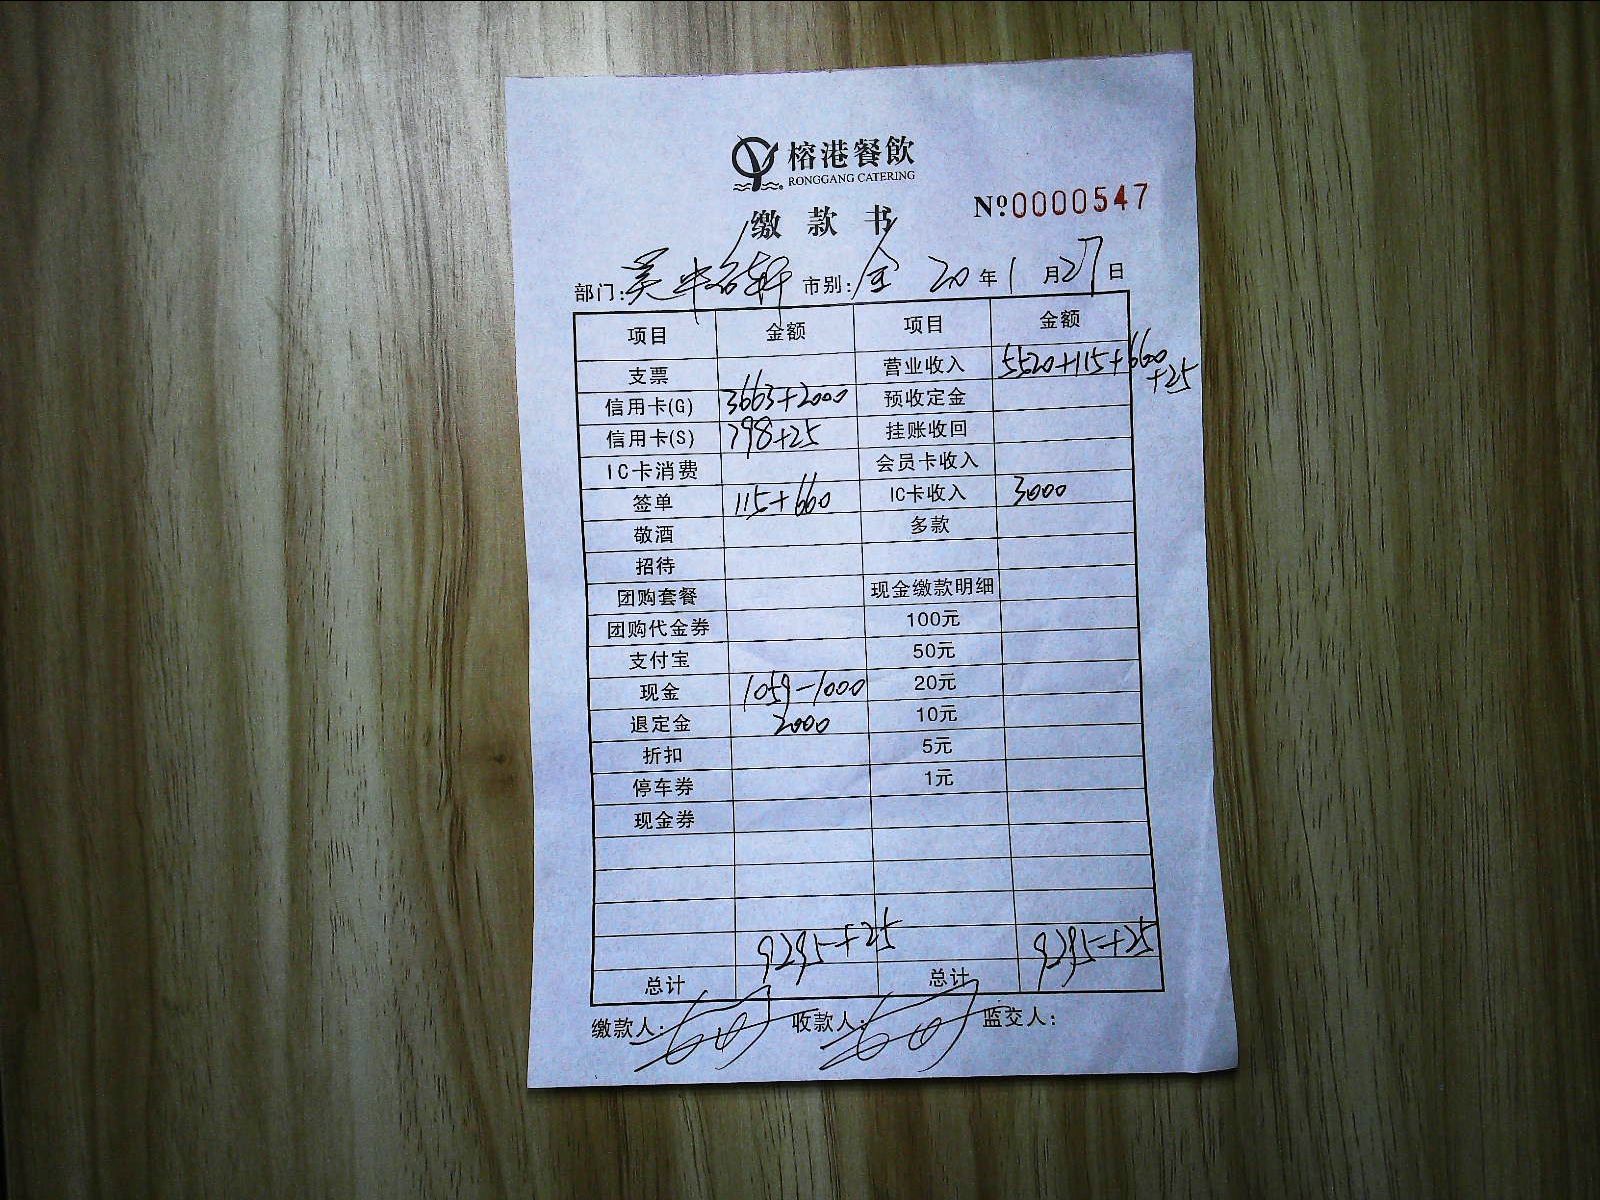 榕港餐飲
RONGGANG CATERING
缴款书
№0000547
部门: 市别:全 20年1月27日
项目 金额 项目 金额
支票 营业收入 5520+115+660+25
信用卡(G) 3663+2000 预收定金
信用卡(S) 798+25 挂账收回
IC卡消费 会员卡收入
签单 115+660 IC卡收入 3000
敬酒 多款
招待
团购套餐 现金缴款明细
团购代金券 100元
支付宝 50元
现金 1059-1000 20元
退定金 2000 10元
折扣 5元
停车券 1元
现金券
总计 9295+25 总计 9295+25
缴款人: 收款人: 监交人: